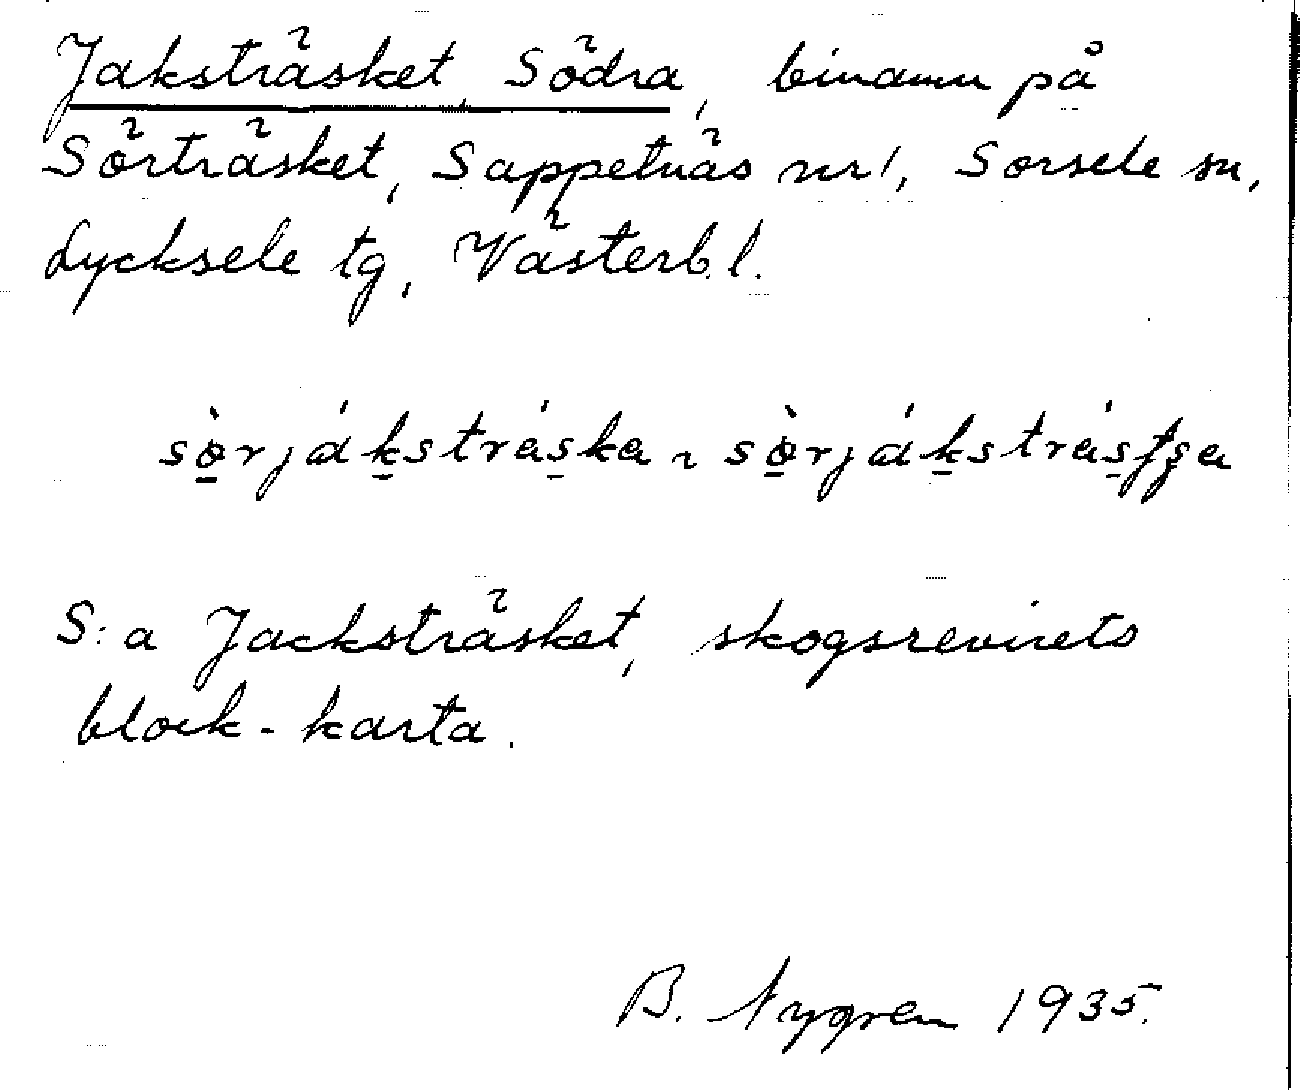 Jaksträsket, Södra, binamn på
Sörträsket, Sappetnäs nr 1, Sorsele sn,
Lycksele tg, Västerb. l.
S:a Jacksträsket, skogsrevirets
block-karta.
B. Nygren 1935.